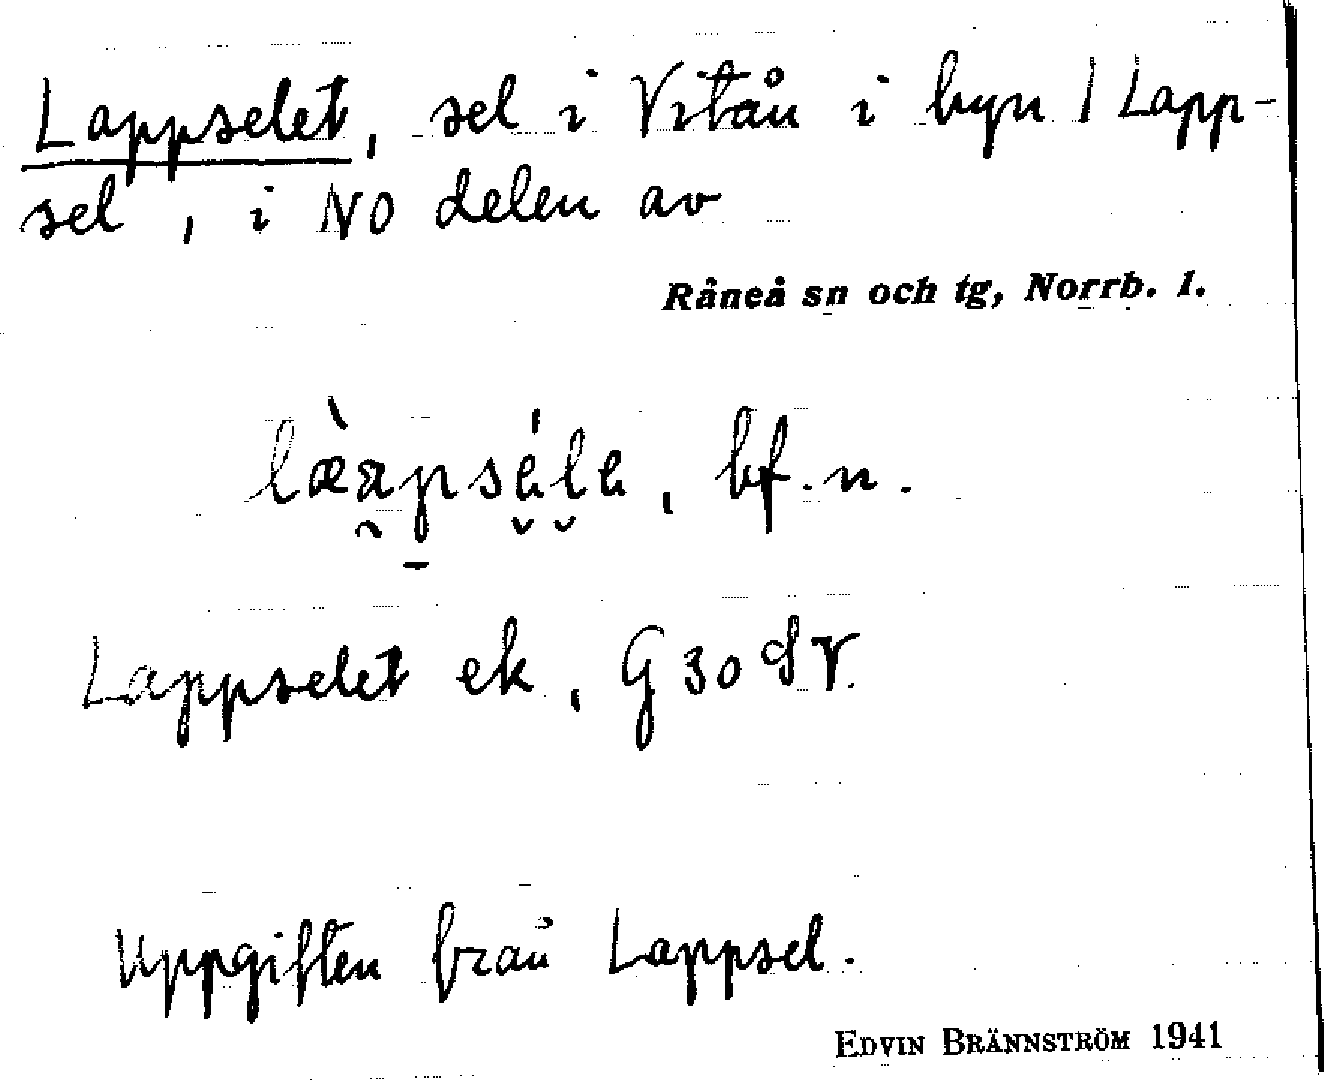 Lappselet, sel i Vitån i byn / Lapp-
sel, i NO delen av
Råneå sn och tg, Norrb. l.
bf. n.
Lappselet ek, G 30 SV.
Uppgiften från Lappsel.
EDVIN BRÄNNSTRÖM 1941